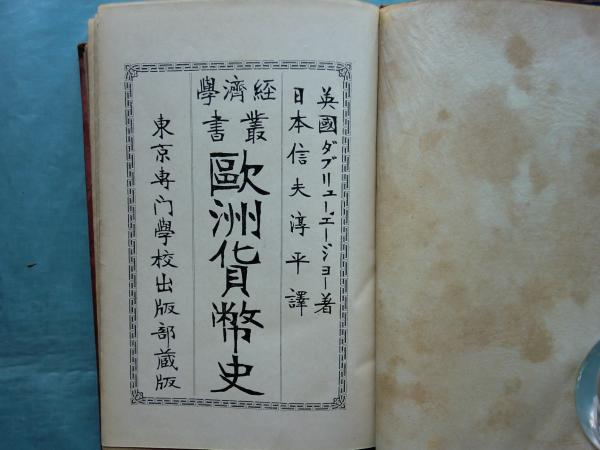 英國ダブリユー、エー、ジョー著
日本信夫淳平譯
經濟學
叢書
歐洲貨幣史
東京専门學校出版部蔵版